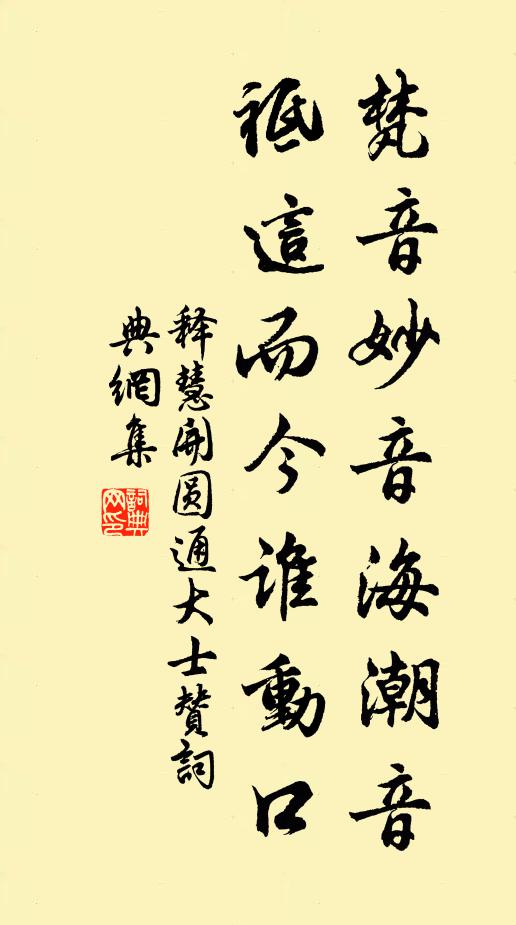 梵音妙音海潮音
祗這而今谁動口
释慧開圆通大士赞詞
典網集
詞典网印